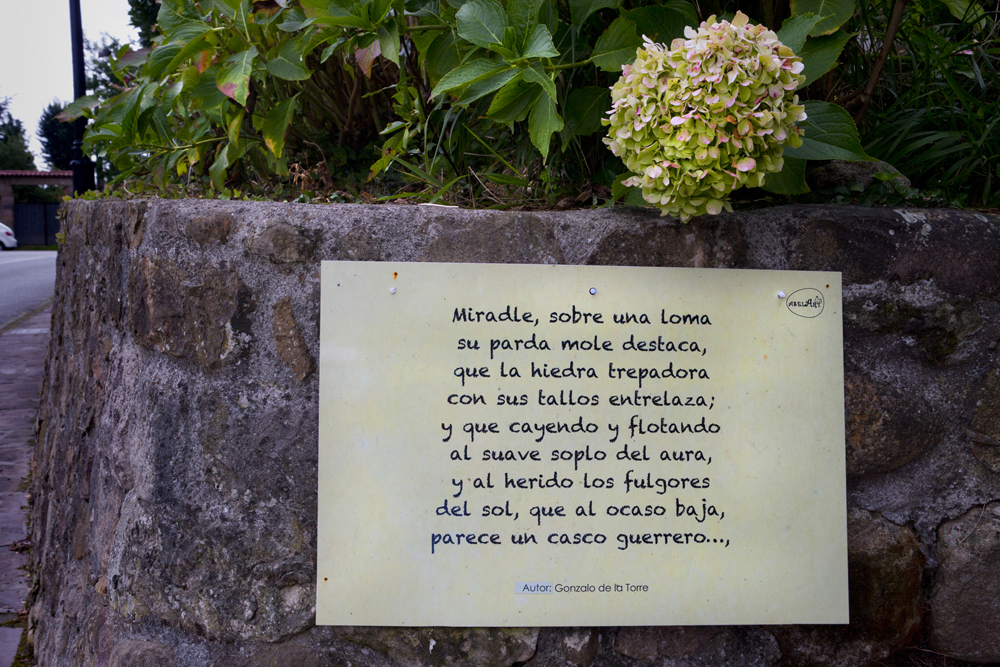 Miradle, sobre una loma
su parda mole destaca,
que la hiedra trepadora
con sus tallos entrelaza;
y que cayendo y flotando
al suave soplo del aura,
y al herido los fulgores
del sol, que al ocaso baja,
parece un casco guerrero...,
Autor: Gonzalo de la Torre